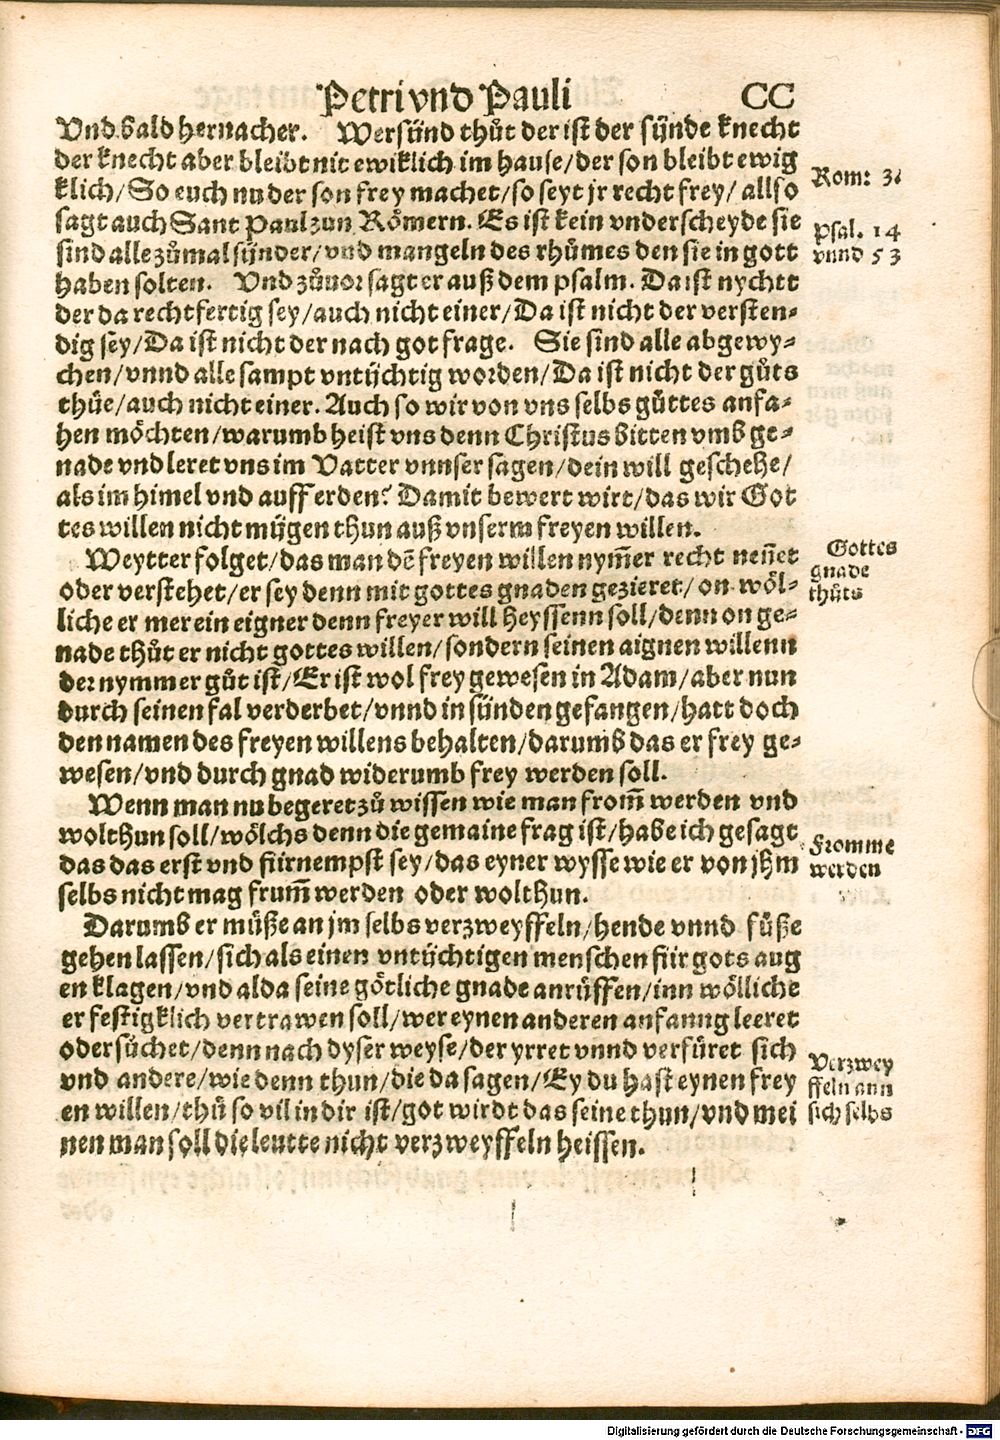 Petri vnd Pauli CC
Vnd bald hernacher. Wer sünd thůt der ist der sünde knecht
der knecht aber bleibt nit ewiklich im hause/der son bleibt ewig
klich/So euch nu der son frey machet/so seyt jr recht frey/allso
sagt auch Sant Paul zun Römern. Es ist kein vnderscheyde sie
sind alle zůmal sünder/vnd mangeln des rhůmes den sie in gott
haben solten. Vnd zůuor sagt er auß dem psalm. Da ist nychtt
der da rechtfertig sey/auch nicht einer/Da ist nicht der versten-
dig sey/Da ist nicht der nach got frage. Sie sind alle abgewy-
chen/vnnd alle sampt vntüchtig worden/Da ist nicht der gůts
thüe/auch nicht einer. Auch so wir von vns selbs gůttes anfa-
hen möchten/warumb heist vns denn Christus bitten vmb ge-
nade vnd leret vns im Vatter vnnser sagen/dein will geschehe/
als im himel vnd auff erden? Damit bewert wirt/das wir Got
tes willen nicht mügen thun auß vnserm freyen willen.
Weytter folget/das man dē freyen willen nym̄er recht nen̄et
oder verstehet/er sey denn mit gottes gnaden gezieret/on wöl-
liche er mer ein eigner denn freyer will heyssenn soll/denn on ge-
nade thůt er nicht gottes willen/sondern seinen aignen willenn
der nymmer gůt ist/Er ist wol frey gewesen in Adam/aber nun
durch seinen fal verderbet/vnnd in sünden gefangen/hatt doch
den namen des freyen willens behalten/darumb das er frey ge-
wesen/vnd durch gnad widerumb frey werden soll.
Wenn man nu begeret zů wissen wie man from̄ werden vnd
wolthun soll/wölchs denn die gemaine frag ist/habe ich gesagt
das das erst vnd fürnempst sey/das eyner wysse wie er von jhm
selbs nicht mag frum̄ werden oder wolthun.
Darumb er müße an jm selbs verzweyffeln/hende vnnd füße
gehen lassen/sich als einen vntüchtigen menschen für gots aug
en klagen/vnd alda seine götliche gnade anrüffen/inn wölliche
er festigklich vertrawen soll/wer eynen anderen anfanng leeret
oder sůchet/denn nach dyser weyse/der yrret vnnd verfüret sich
vnd andere/wie denn thun/die da sagen/Ey du hast eynen frey
en willen/thů so vil in dir ist/got wirdt das seine thun/vnd mei
nen man soll die leutte nicht verzweyffeln heissen.
Rom: 3.
Psal. 14
vnnd 53
Gottes
gnade
thůts
Fromme
werden
Verzwey
ffeln ann
sich selbs
Digitalisierung gefördert durch die Deutsche Forschungsgemeinschaft - DFG